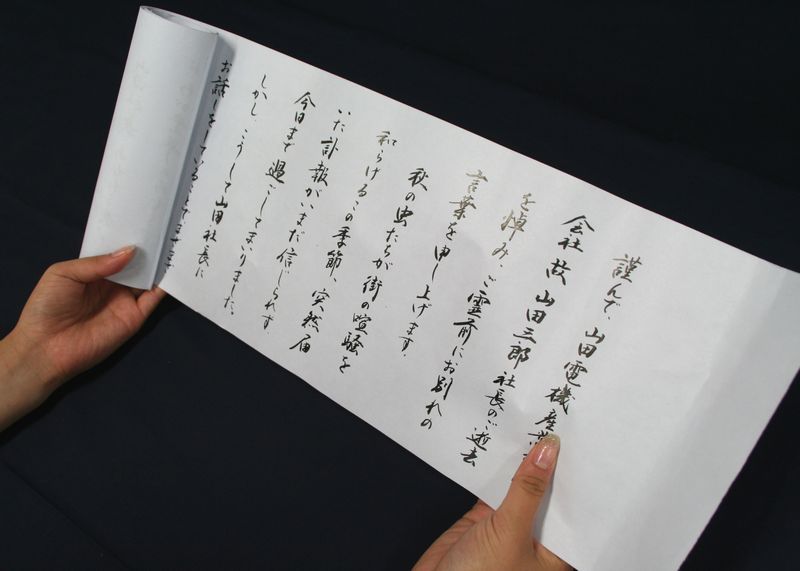 謹んで、山田電機産業
会社 故 山田三郎 社長のご逝去
を悼み、ご霊前にお別れの
言葉を申し上げます。
秋の虫たちが街の喧騒を
和らげるこの季節、突然届
いた訃報がいまだ信じられず
今日まで過ごしてまいりました。
しかし こうして山田社長に
お話しをしている